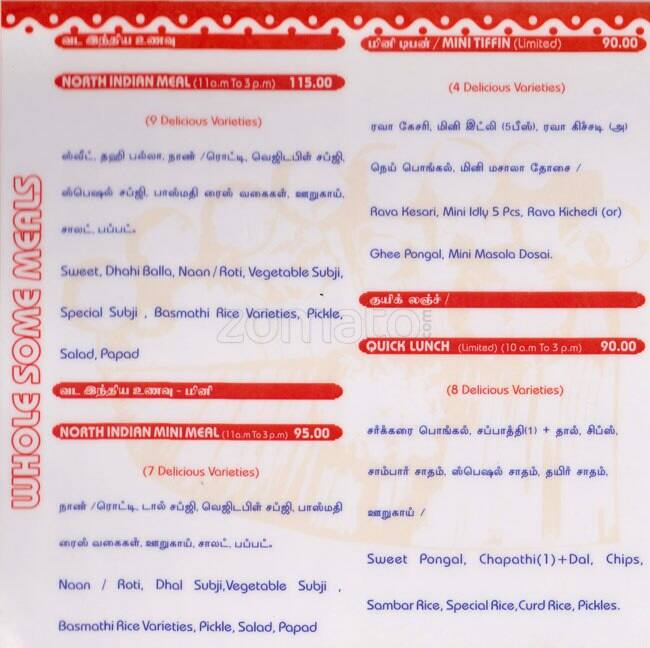 WHOLE SOME MEALS
வட இந்திய உணவு
NORTH INDIAN MEAL (11a.m To 3 p.m) 115.00
(9 Delicious Varieties)
ஸ்வீட், தஹி பல்லா, நாண் /ரொட்டி, வெஜிடபிள் சப்ஜி,
ஸ்பெஷல் சப்ஜி, பாஸ்மதி ரைஸ் வகைகள், ஊறுகாய்,
சாலட், பப்பட்.
Sweet, Dhahi Balla, Naan / Roti, Vegetable Subji,
Special Subji , Basmathi Rice Varieties, Pickle,
Salad, Papad
வட இந்திய உணவு - மினி
NORTH INDIAN MINI MEAL (11a.m To 3 p.m) 95.00
(7 Delicious Varieties)
நாண் /ரொட்டி, டால் சப்ஜி, வெஜிடபிள் சப்ஜி, பாஸ்மதி
ரைஸ் வகைகள், ஊறுகாய், சாலட், பப்பட்.
Naan / Roti, Dhal Subji,Vegetable Subji ,
Basmathi Rice Varieties, Pickle, Salad, Papad
மினி டிபன் / MINI TIFFIN (Limited) 90.00
(4 Delicious Varieties)
ரவா கேசரி, மினி இட்லி (5பீஸ்), ரவா கிச்சடி (அ)
நெய் பொங்கல், மினி மசாலா தோசை /
Rava Kesari, Mini Idly 5 Pcs, Rava Kichedi (or)
Ghee Pongal, Mini Masala Dosai.
குயிக் லஞ்ச் /
QUICK LUNCH (Limited) (10 a.m To 3 p.m) 90.00
(8 Delicious Varieties)
சர்க்கரை பொங்கல், சப்பாத்தி(1) + தால், சிப்ஸ்,
சாம்பார் சாதம், ஸ்பெஷல் சாதம், தயிர் சாதம்,
ஊறுகாய் /
Sweet Pongal, Chapathi(1)+Dal, Chips,
Sambar Rice, Special Rice,Curd Rice, Pickles.
zomato.com